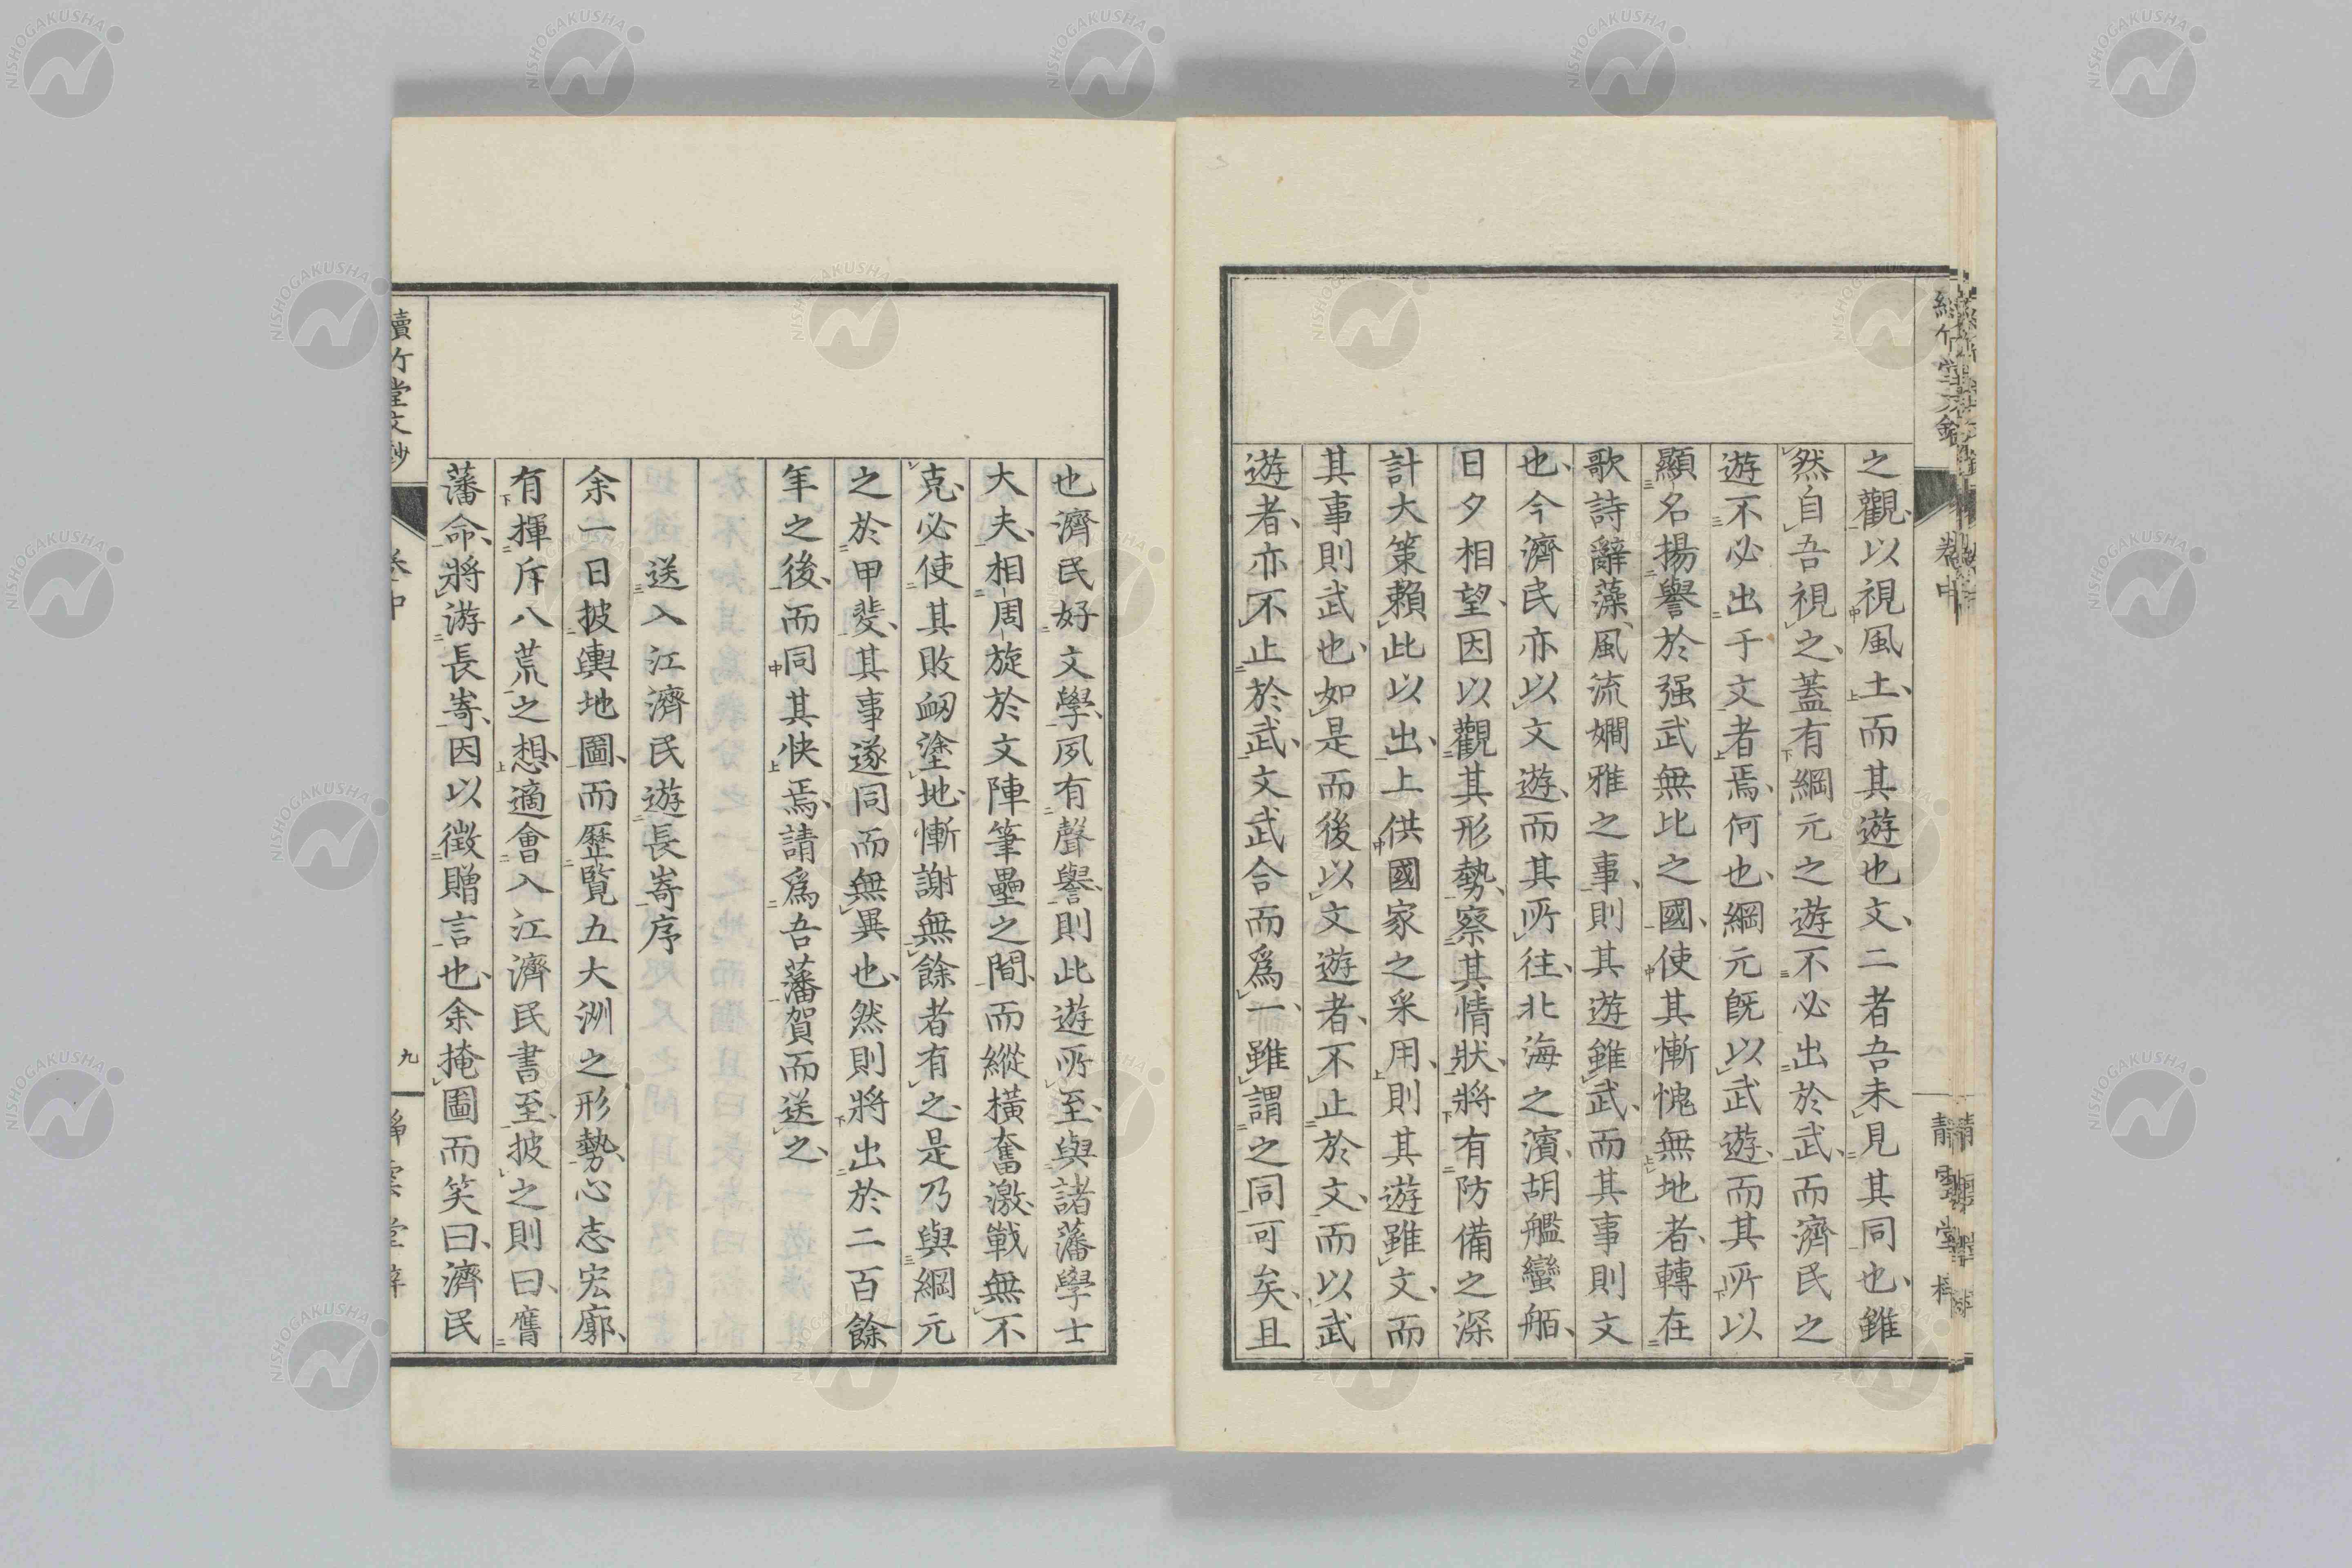 之觀以視風土而其遊也文二者吾未見其同也雖
然自吾視之蓋有綱元之遊不必出於武而濟民之
遊不必出于文者焉何也綱元旣以武遊而其所以
顯名揚譽於强武無比之國使其慚愧無地者轉在
歌詩辭藻風流嫺雅之事則其遊雖武而其事則文
也今濟民亦以文遊而其所往北海之濱胡艦蠻舶
日夕相望因以觀其形勢察其情狀將有防備之深
計大策賴此以出上供國家之采用則其遊雖文而
其事則武也如是而後以文遊者不止於文而以武
遊者亦不止於武文武合而爲一雖謂之同可矣且
也濟民好文學夙有聲譽則此遊所至與諸藩學士
大夫相周旋於文陣筆壘之間而縱橫奮激戰無不
克必使其敗衂塗地慚謝無餘者有之是乃與綱元
之於甲斐其事遂同而無異也然則將出於二百餘
年之後而同其快焉請爲吾藩賀而送之
送入江濟民遊長嵜序
余一日披輿地圖而歷覽五大洲之形勢心志宏廓
有揮斥八荒之想適會入江濟民書至披之則曰膺
藩命將游長嵜因以徵贈言也余掩圖而笑曰濟民
續竹堂文鈔
卷中
九
靜雲堂梓